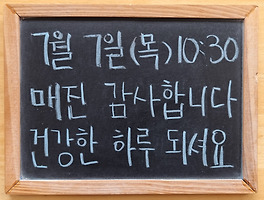 7월 7일(목)10:30
매진 감사합니다
건강한 하루 되셔요